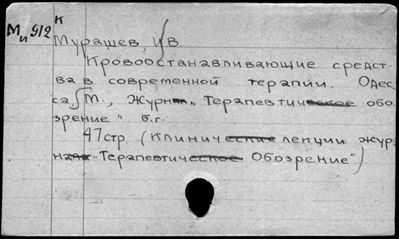 К
Ми 912
Мурашев, И В.
Кровоостанавливающие средст
ва в современной терапии. Одес
са, М., Журнал „Терапевтическое обо
зрение" б.г.
47 стр. (Клинические лекции жур
нала „Терапевтическое Обозрение")